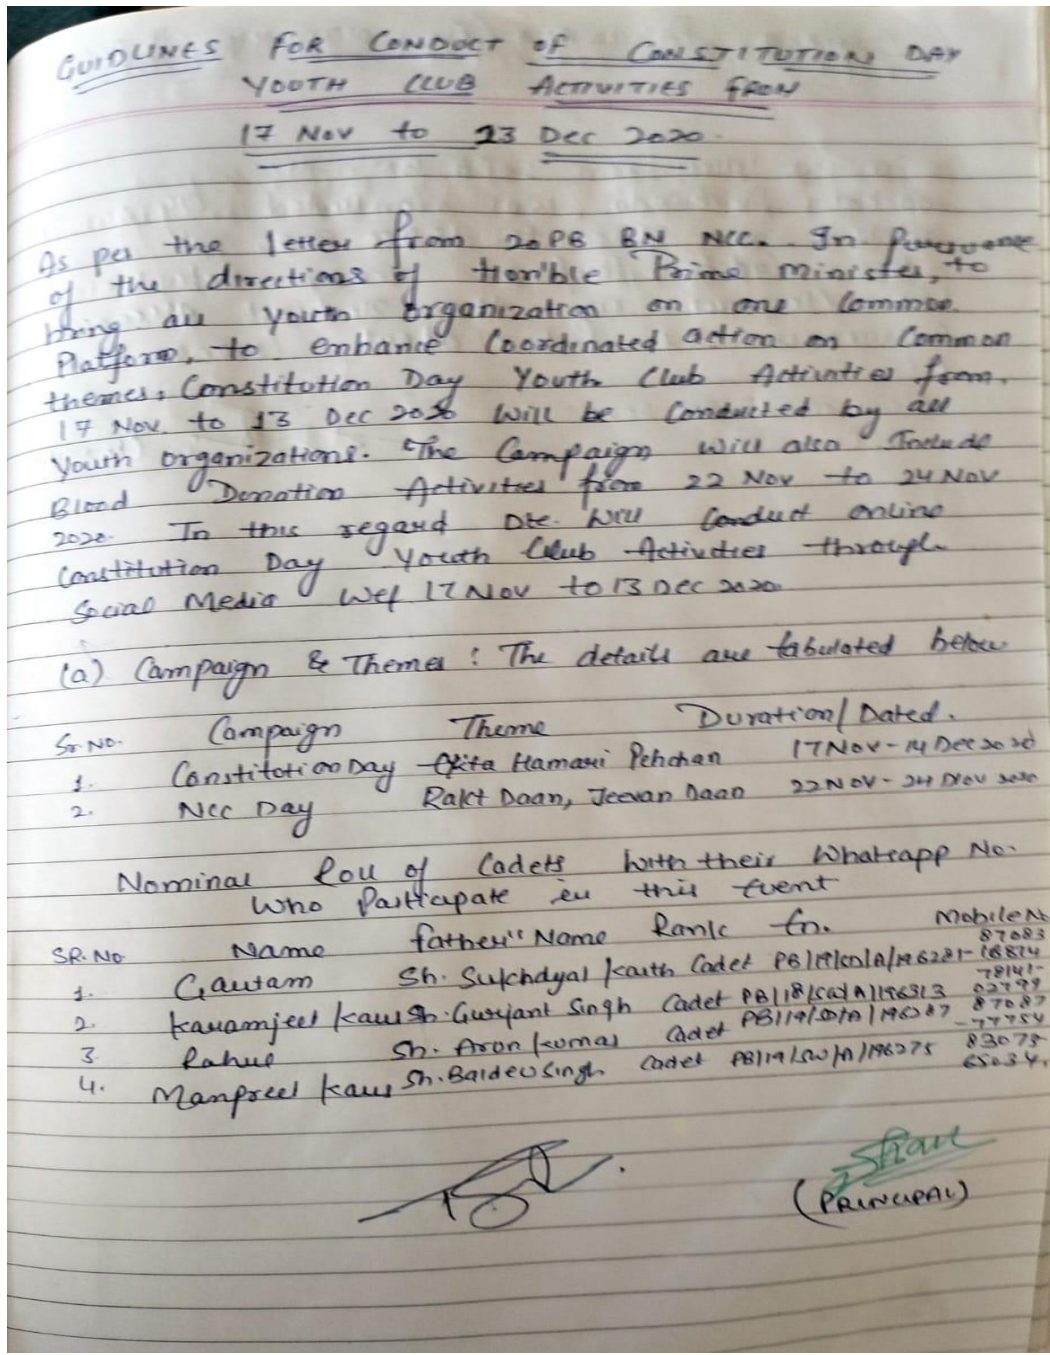 GUIDLINES FOR CONDUCT OF CONSTITUTION DAY
YOUTH CLUB ACTIVITIES FROM
17 Nov to 13 Dec 2020.
As per the letter from 20 PB BN NCC. In Pursuance
of the directions of Hon'ble Prime Minister, to
bring all youth Organization on one Common
Platform, to enhance Coordinated action on Common
themes, Constitution Day Youth Club Activities from
17 Nov to 13 Dec 2020 will be Conducted by all
Youth organizations. The Campaign will also Include
Blood Donation Activities from 22 Nov to 24 Nov
2020. In this regard Dte. will Conduct online
Constitution Day Youth Club Activities through
Social Media wef 17 Nov to 13 Dec 2020.
(a) Campaign & Themes : The details are tabulated below
Sr. No. Campaign Theme Duration/Dated.
1. Constitution Day Ekta Hamari Pehchan 17 Nov - 14 Dec 2020
2. Ncc Day Rakt Daan, Jeevan Daan 22 Nov - 24 Nov 2020
Nominal Roll of Cadets with their Whatsapp No.
who Participate in this Event
SR. No Name father's Name Rank Mobile No
1. Gautam Sh. Sukhdyal Kaith Cadet 87083
2. Karamjeet Kaur Sh. Gurjant Singh Cadet 78141-
02799
3. Rahul Sh. Arun Kumar Cadet 87087
-77754
4. Manpreet Kaur Sh. Baldev Singh Cadet 83073-
65034.
(PRINCIPAL)